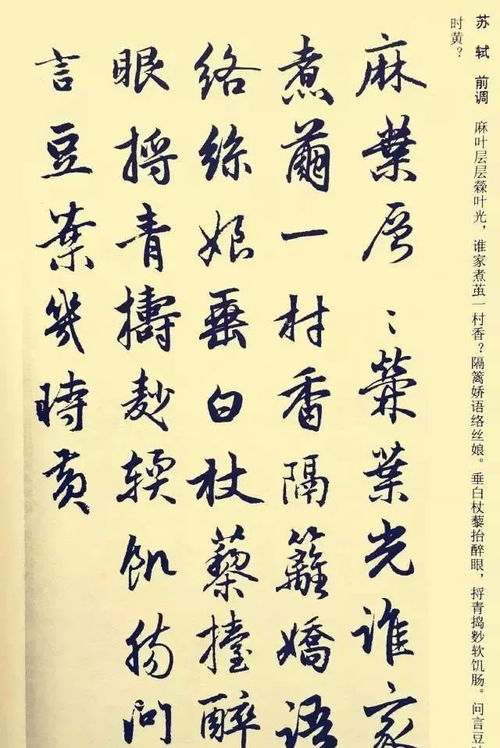 苏轼 前调 麻叶层层檾叶光，谁家煮茧一村香？隔篱娇语络丝娘。垂白杖藜抬醉眼，捋青捣麨软饥肠。问言豆
时黄？
麻葉層〻檾葉光谁家
煮繭一村香隔籬嬌語
络絲娘垂白杖藜擡醉
眼捋青擣麨輭飢腸问
言豆葉幾時黄